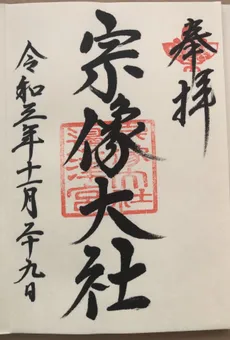 奉拝
宗像大社
令和三年十一月二十九日